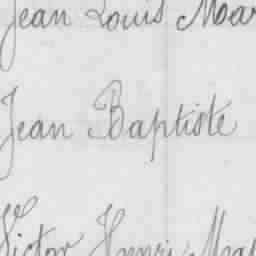 Jean Louis Mar
Jean Baptiste
Victor Henri Mar